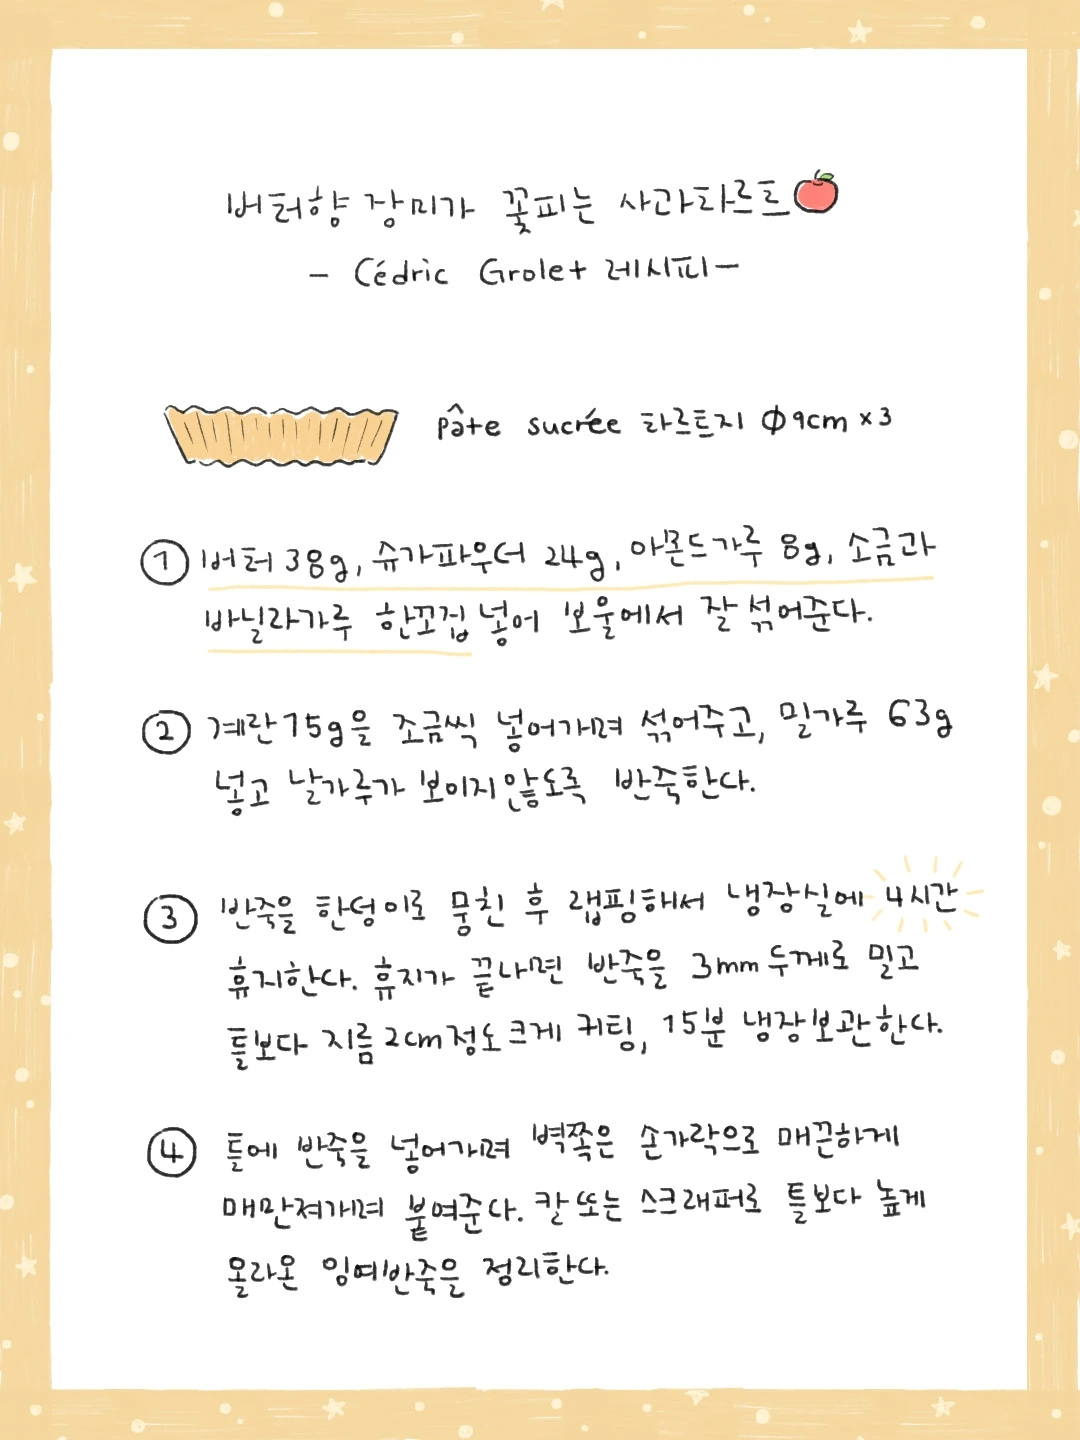 버터향 장미가 꽃피는 사과타르트
- Cédric Grolet 레시피 -
pâte sucrée 타르트지 Φ9cm x 3
① 버터 38g, 슈가파우더 24g, 아몬드가루 8g, 소금과
바닐라가루 한꼬집 넣어 보울에서 잘 섞어준다.
② 계란 15g을 조금씩 넣어가며 섞어주고, 밀가루 63g
넣고 날가루가 보이지않도록 반죽한다.
③ 반죽을 한덩이로 뭉친 후 랩핑해서 냉장실에 4시간
휴지한다. 휴지가 끝나면 반죽을 3mm 두께로 밀고
틀보다 지름 2cm 정도 크게 커팅, 15분 냉장보관한다.
④ 틀에 반죽을 넣어가며 벽쪽은 손가락으로 매끈하게
매만져가며 붙여준다. 칼 또는 스크래퍼로 틀보다 높게
올라온 잉여반죽을 정리한다.